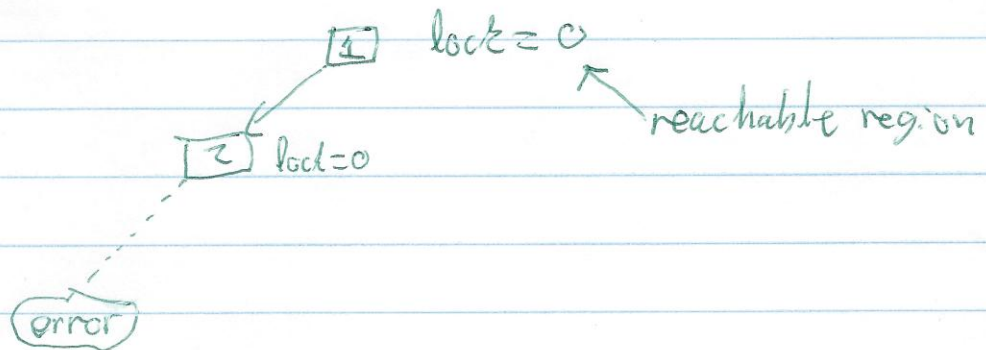 1 lock = 0
reachable region
2 lock=0
error